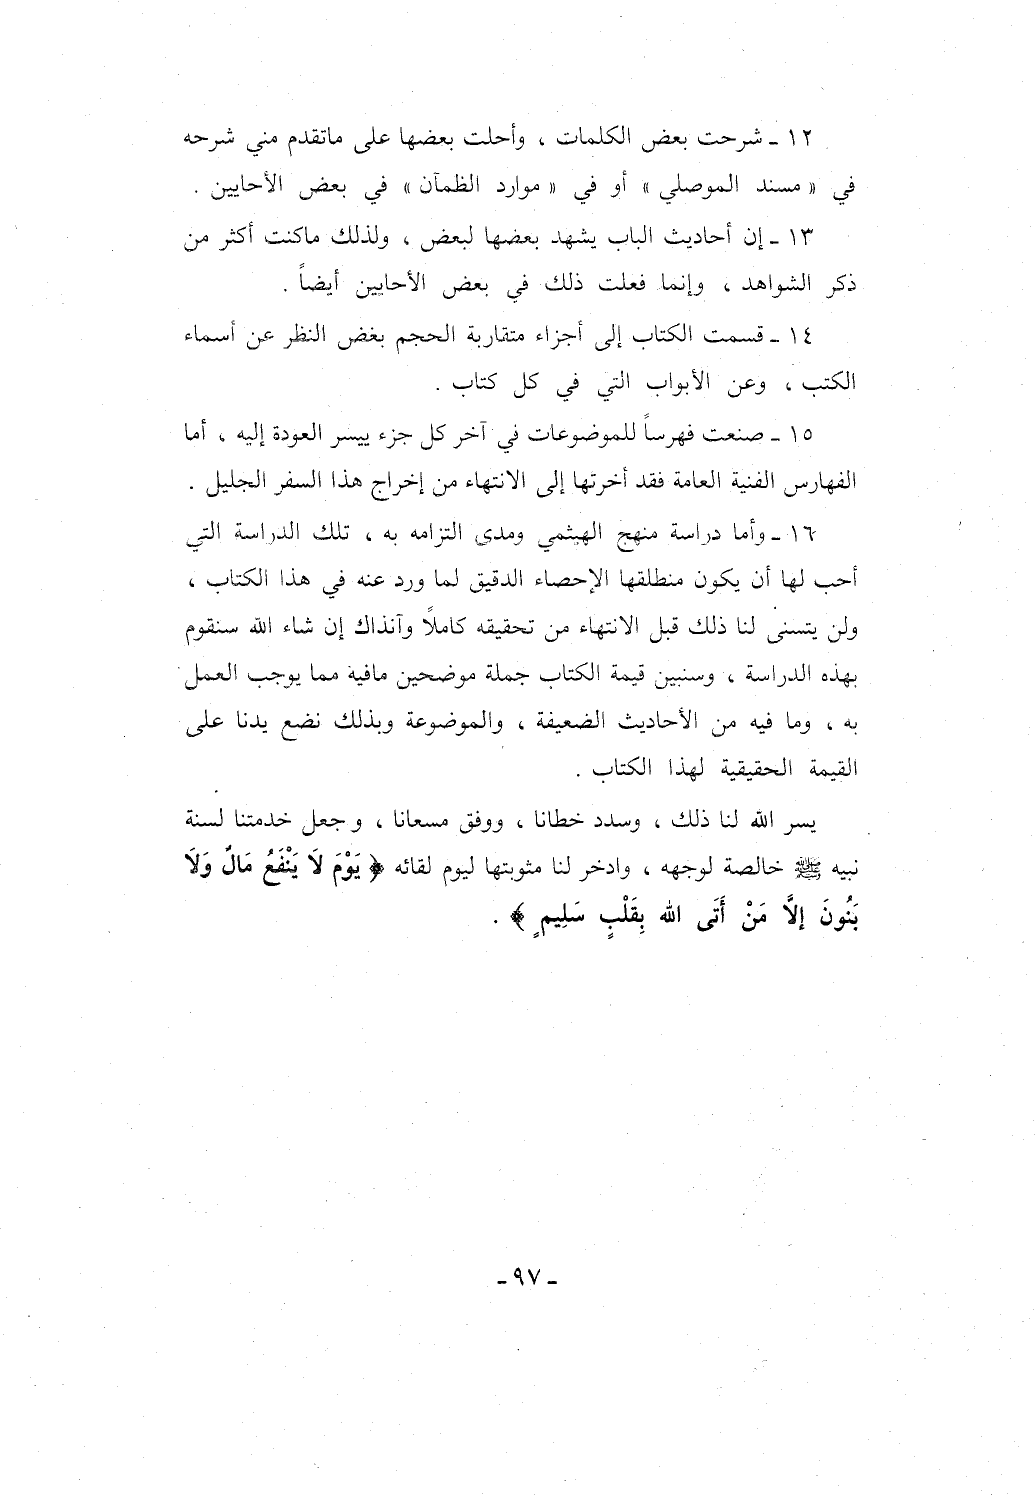 ١٢ ـ شرحت بعض الكلمات ، وأحلت بعضها على ماتقدم مني شرحه
في « مسند الموصلي » أو في « موارد الظمآن » في بعض الأحايين .
١٣ ـ إن أحاديث الباب يشهد بعضها لبعض ، ولذلك ماكنت أكثر من
ذكر الشواهد ، وإنما فعلت ذلك في بعض الأحايين أيضاً .
١٤ ـ قسمت الكتاب إلى أجزاء متقاربة الحجم بغض النظر عن أسماء
الكتب ، وعن الأبواب التي في كل كتاب .
١٥ ـ صنعت فهرساً للموضوعات في آخر كل جزء ييسر العودة إليه ، أما
الفهارس الفنية العامة فقد أخرتها إلى الانتهاء من إخراج هذا السفر الجليل .
١٦ ـ وأما دراسة منهج الهيثمي ومدى التزامه به ، تلك الدراسة التي
أحب لها أن يكون منطلقها الإحصاء الدقيق لما ورد عنه في هذا الكتاب ،
ولن يتسنى لنا ذلك قبل الانتهاء من تحقيقه كاملاً وآنذاك إن شاء الله سنقوم
بهذه الدراسة ، وسنبين قيمة الكتاب جملة موضحين مافيه مما يوجب العمل
به ، وما فيه من الأحاديث الضعيفة ، والموضوعة وبذلك نضع يدنا على
القيمة الحقيقية لهذا الكتاب .
يسر الله لنا ذلك ، وسدد خطانا ، ووفق مسعانا ، وجعل خدمتنا لسنة
نبيه ﷺ خالصة لوجهه ، وادخر لنا مثوبتها ليوم لقائه ﴿ يَوْمَ لَا يَنْفَعُ مَالٌ وَلَا
بَنُونَ إلَّا مَنْ أَتَى الله بِقَلْبٍ سَلِيمٍ ﴾ .
ـ ٩٧ ـ